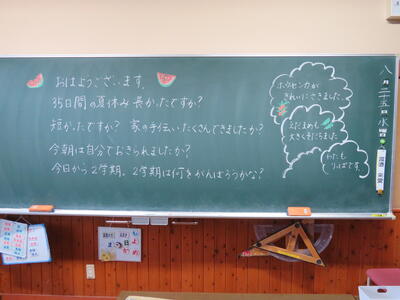 おはようございます。
35日間の夏休み長かったですか？
短かったですか？　家の手伝いたくさんできましたか？
今朝は自分でおきられましたか？
今日から2学期。2学期は何をがんばろうかな？
ホウセンカが
きれいにさきました。
えだまめも
大きくそだちました。
わたも
りっぱです。
八月二十五日水曜日